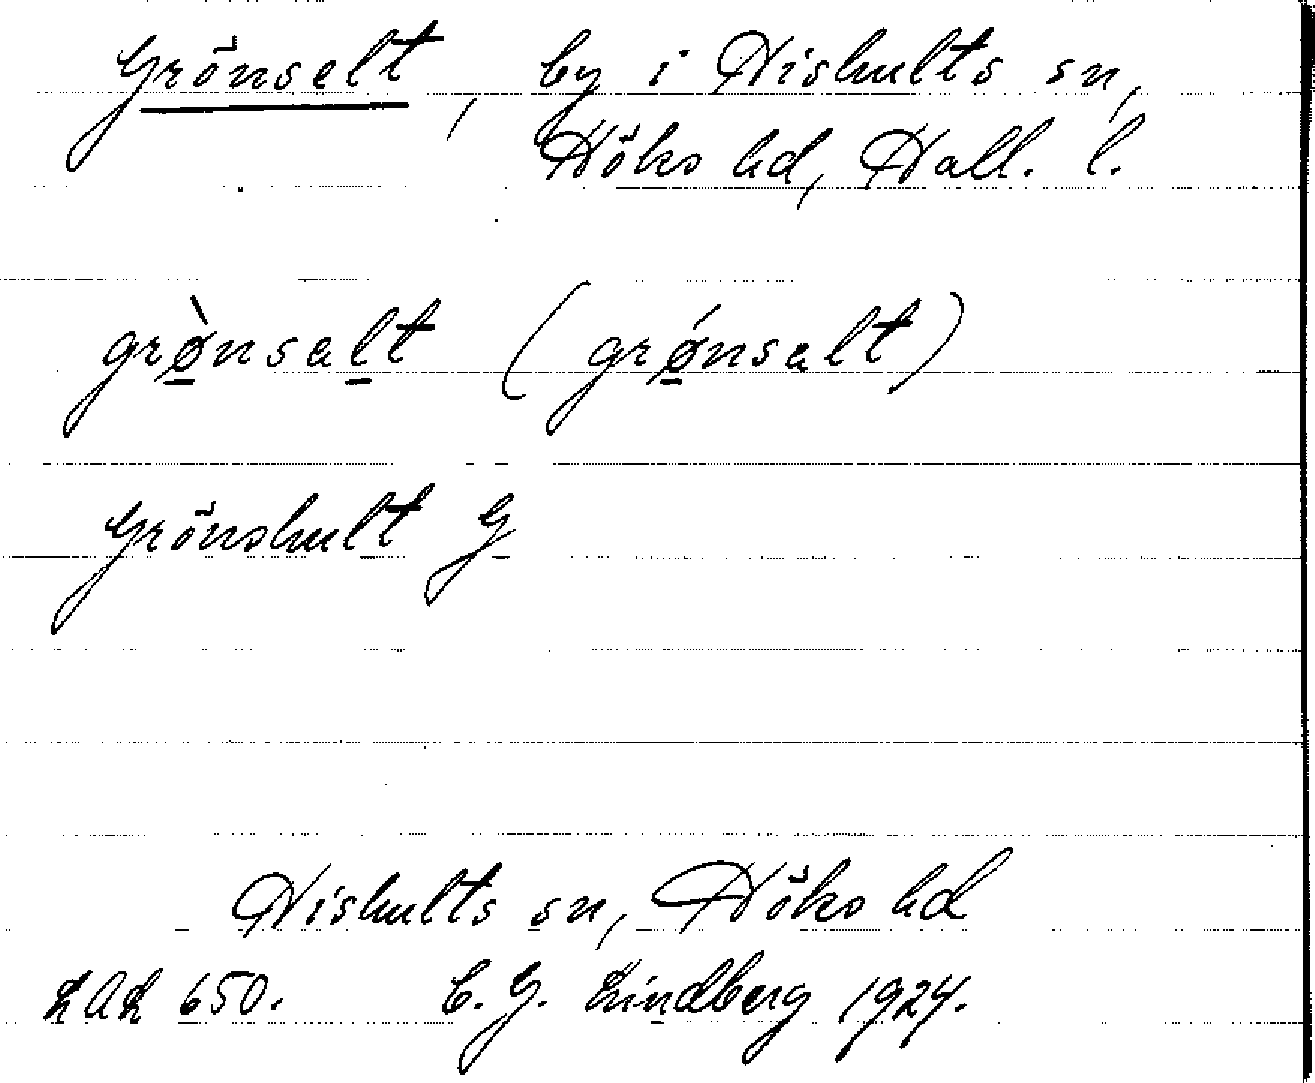 Grönselt, by i Hishults sn,
Höks hd, Hall. l.
grø̀nsalt (grǿnsalt)
Grönshult G
Hishults sn, Höks hd
LAL 650. C. G. Lindberg 1924.